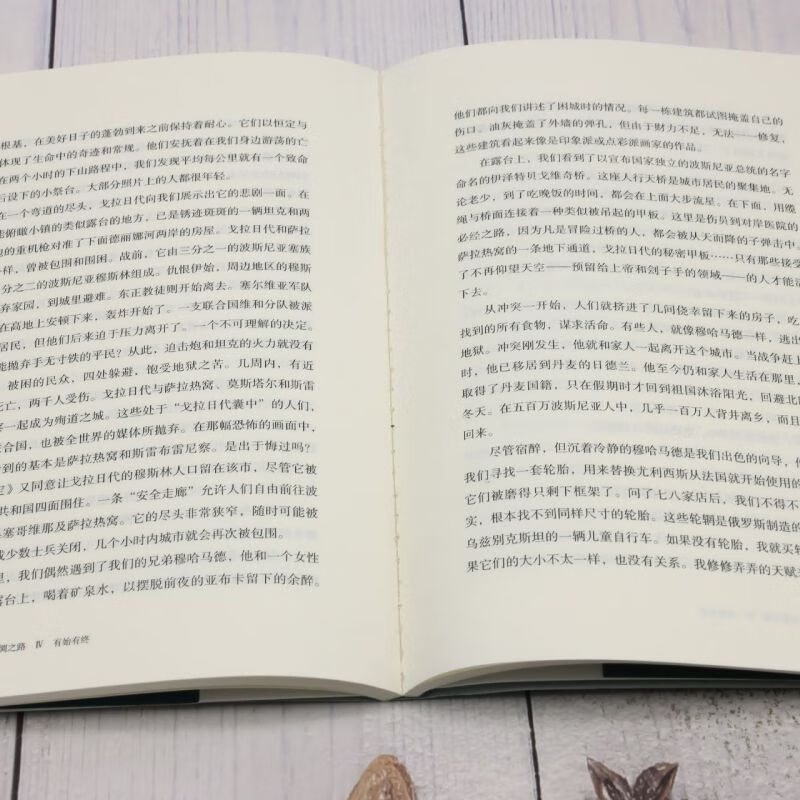 根基，在美好日子的蓬勃到来之前保持着耐心。它们以恒定与
体现了生命中的奇迹和常规。他们安抚着在我们身边游荡的亡
在两个小时的下山路程中，我们发现平均每公里就有一个致命
后设下的小祭台。大部分照片上的人都很年轻。
在一个弯道的尽头，戈拉日代向我们展示出它的悲剧一面。在
能俯瞰小镇的类似露台的地方，已是锈迹斑斑的一辆坦克和两
的重机枪对准了下面德丽娜河两岸的房屋。戈拉日代和萨拉
一样，曾被包围和围困。战前，它由三分之一的波斯尼亚塞族
分之二的波斯尼亚穆斯林组成。仇恨伊始，周边地区的穆斯
弃家园，到城里避难。东正教徒则开始离去。塞尔维亚军队
在高地上安顿下来，轰炸开始了。一支联合国维和分队被派
居民，但他们后来迫于压力离开了。一个不可理解的决定。
能抛弃手无寸铁的平民？从此，迫击炮和坦克的火力就没有
被困的民众，四处躲避，饱受地狱之苦。几周内，有近
死亡，两千人受伤。戈拉日代与萨拉热窝、莫斯塔尔和斯雷
一起成为殉道之城。这些处于“戈拉日代囊中”的人们，
合国，也被全世界的媒体所抛弃。在那幅恐怖的画面中，
到的基本是萨拉热窝和斯雷布雷尼察。是出于悔过吗？
》又同意让戈拉日代的穆斯林人口留在该市，尽管它被
共和国四面围住。一条“安全走廊”允许人们自由前往波
塞哥维那及萨拉热窝。它的尽头非常狭窄，随时可能被
减少数士兵关闭，几个小时内城市就会再次被包围。
里，我们偶然遇到了我们的兄弟穆哈马德，他和一个女性
露台上，喝着矿泉水，以摆脱前夜的亚布卡留下的余醉。
绸之路 Ⅳ 有始有终
他们都向我们讲述了困城时的情况。每一栋建筑都试图掩盖自己的
伤口。油灰掩盖了外墙的弹孔，但由于财力不足，无法一一修复，
这些建筑看起来像是印象派或点彩派画家的作品。
在露台上，我们看到了以宣布国家独立的波斯尼亚总统的名字
命名的伊泽特贝戈维奇桥。这座人行天桥是城市居民的聚集地。无
论老少，到了吃晚饭的时间，都会在上面大步流星。在下面，用缆
绳与桥面连接着一种类似被吊起的甲板。这里是伤员到对岸医院的
必经之路，因为凡是冒险过桥的人，都会被从天而降的子弹击中。
萨拉热窝的一条地下通道，戈拉日代的秘密甲板……只有那些接受
了不再仰望天空——预留给上帝和刽子手的领域——的人才能活
下去。
从冲突一开始，人们就挤进了几间侥幸留下来的房子，吃
找到的所有食物，谋求活命。有些人，就像穆哈马德一样，逃出
地狱。冲突刚发生，他就和家人一起离开这个城市。当战争赶上
时，他已移居到丹麦的日德兰。他至今仍和家人生活在那里，
取得了丹麦国籍，只在假期时才回到祖国沐浴阳光，回避北
冬天。在五百万波斯尼亚人中，几乎一百万人背井离乡，而且
回来。
尽管宿醉，但沉着冷静的穆哈马德是我们出色的向导，他
我们寻找一套轮胎，用来替换尤利西斯从法国就开始使用的
它们被磨得只剩下框架了。问了七八家店后，我们不得不
实，根本找不到同样尺寸的轮胎。这些轮辋是俄罗斯制造的
乌兹别克斯坦的一辆儿童自行车。如果没有轮胎，我就买轮
果它们的大小不太一样，也没有关系。我修修弄弄的天赋